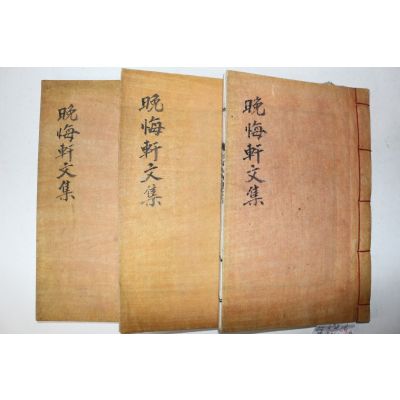 晩悔軒文集
晩悔軒文集
晩悔軒文集